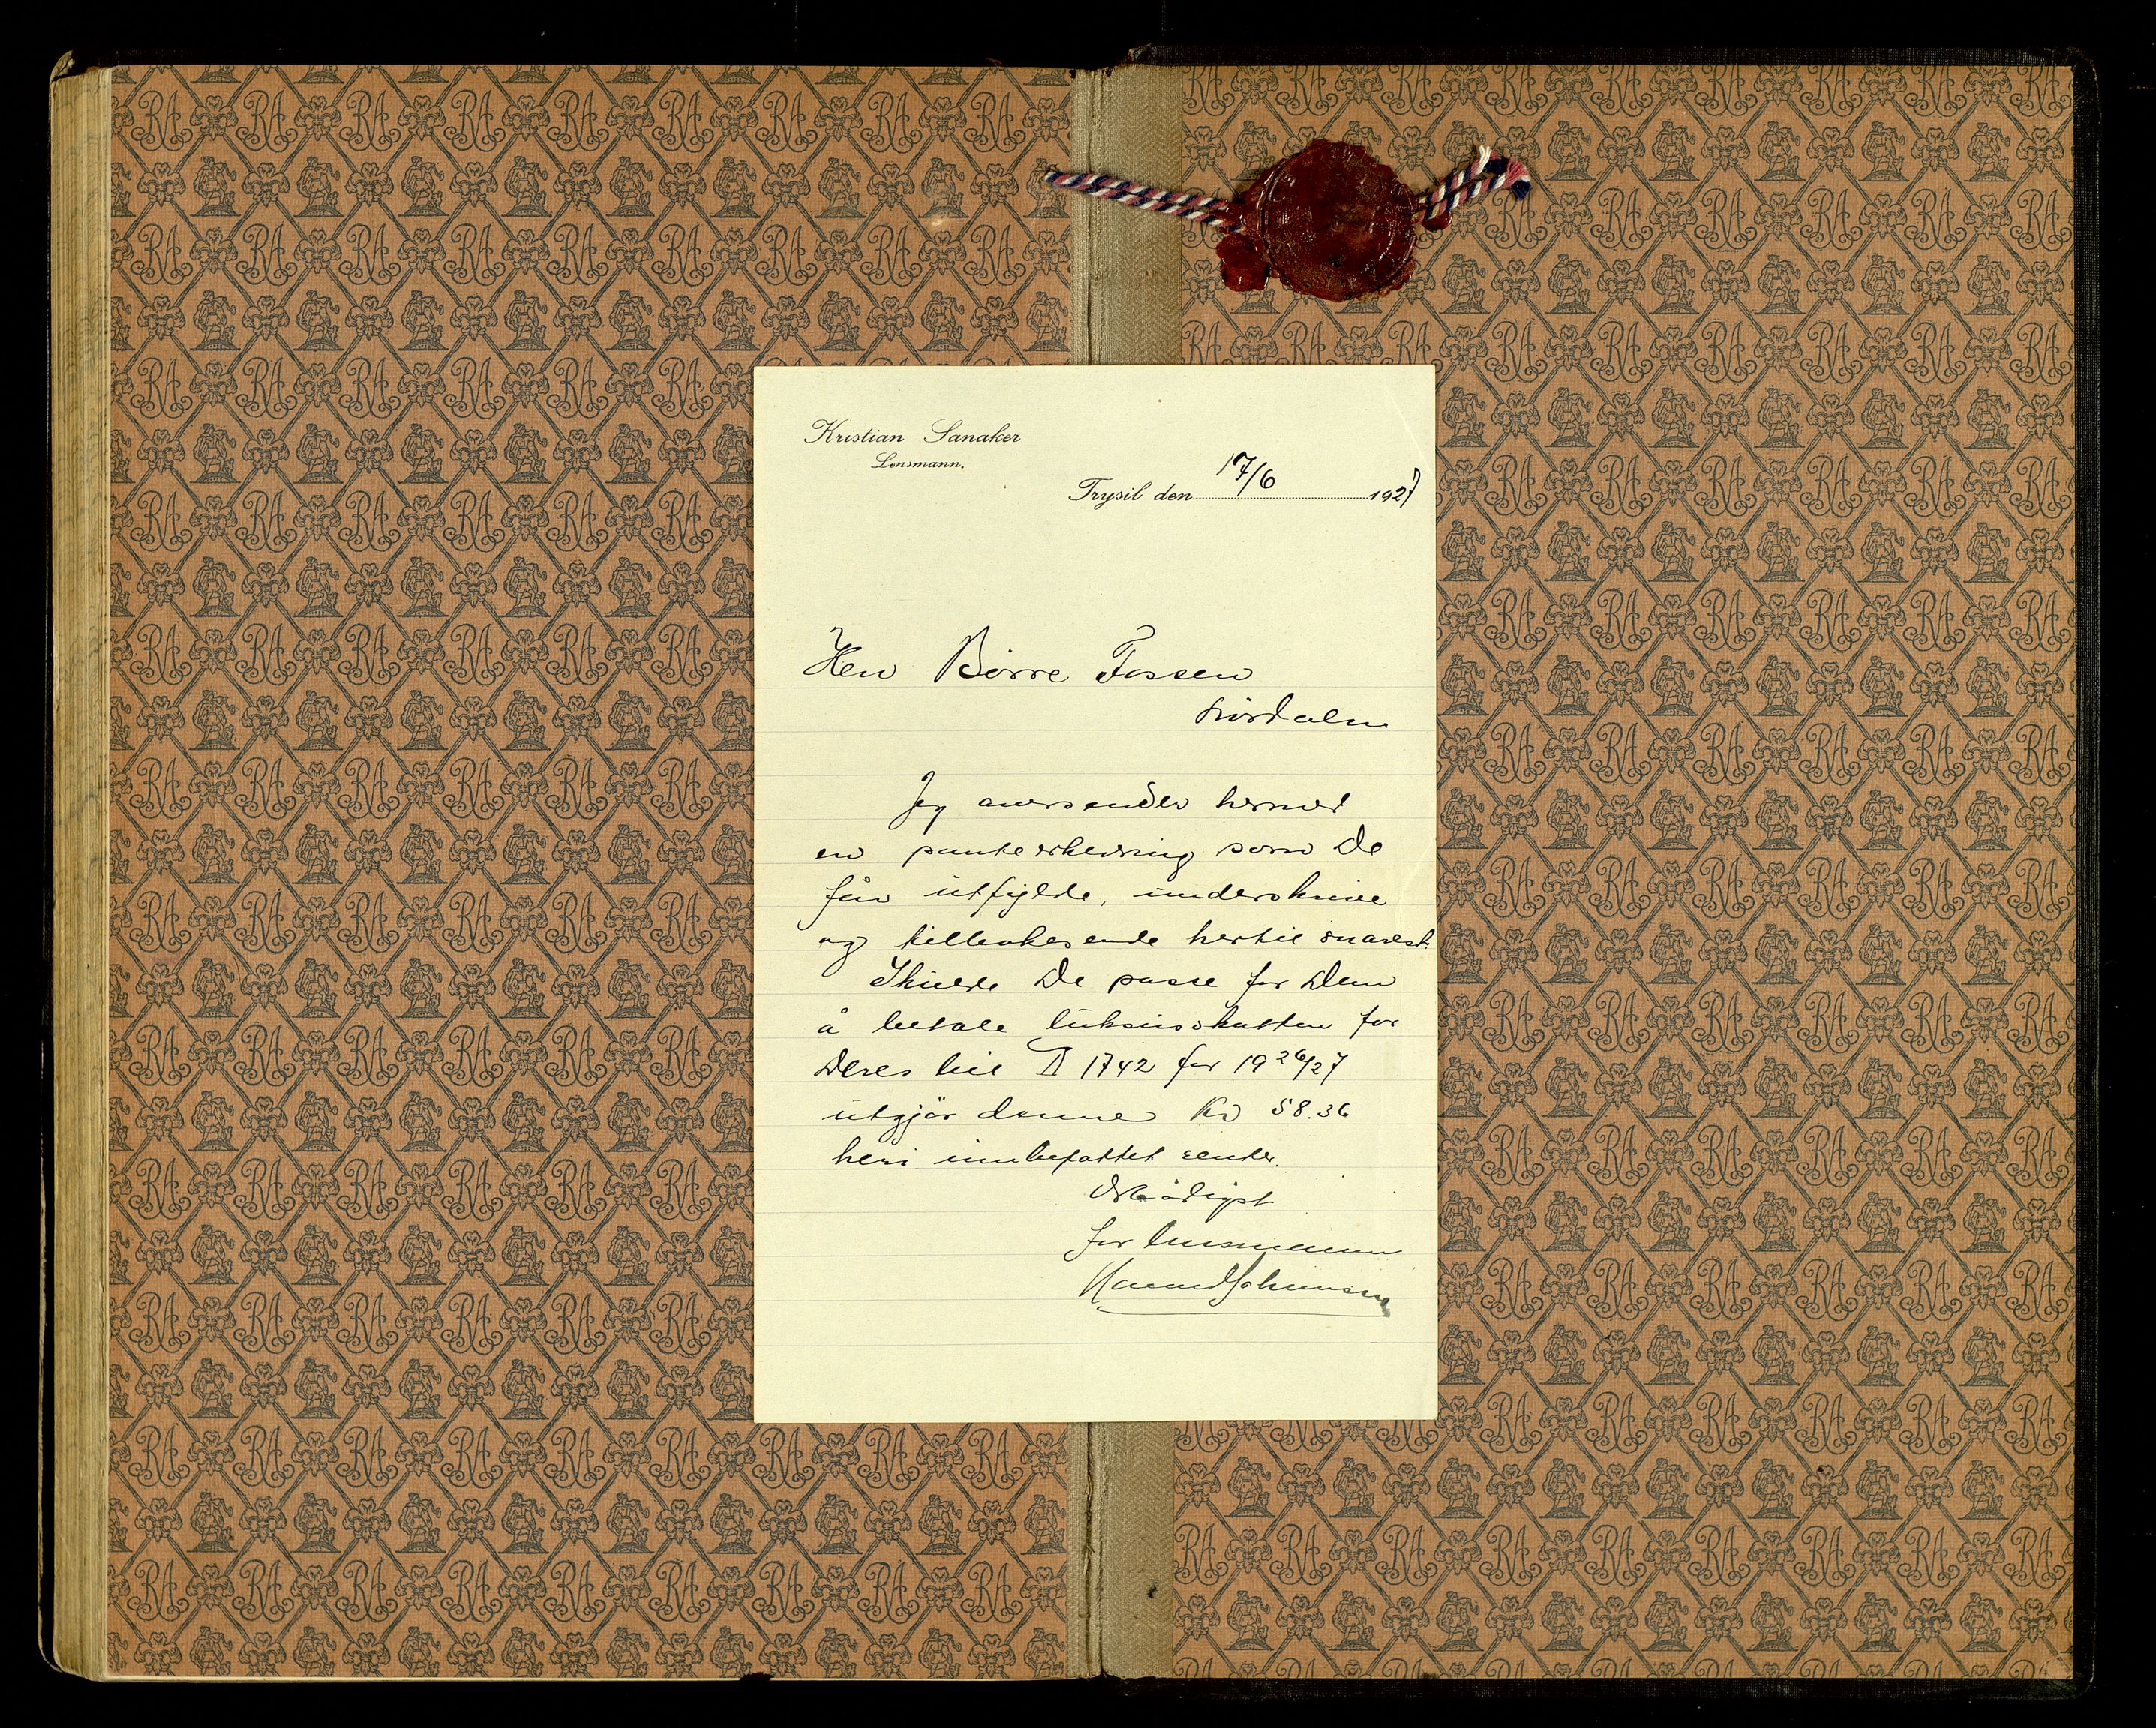 Kristian Sanaker
Lensmann.
Trysil den 17/6 1927
Herr Börre Fossen
Jeg oversender herved
en panteerklæring som De
får utfylde, underskrive
og tilbakesende hertil snarest.
Skulde De passe for Dem
å betale luksusskatten for
Deres bil D 1742 for 1926/27
utgjör denne Kr 58.36
heri innbefattet renter.
Ærbödigst
for lensmannen